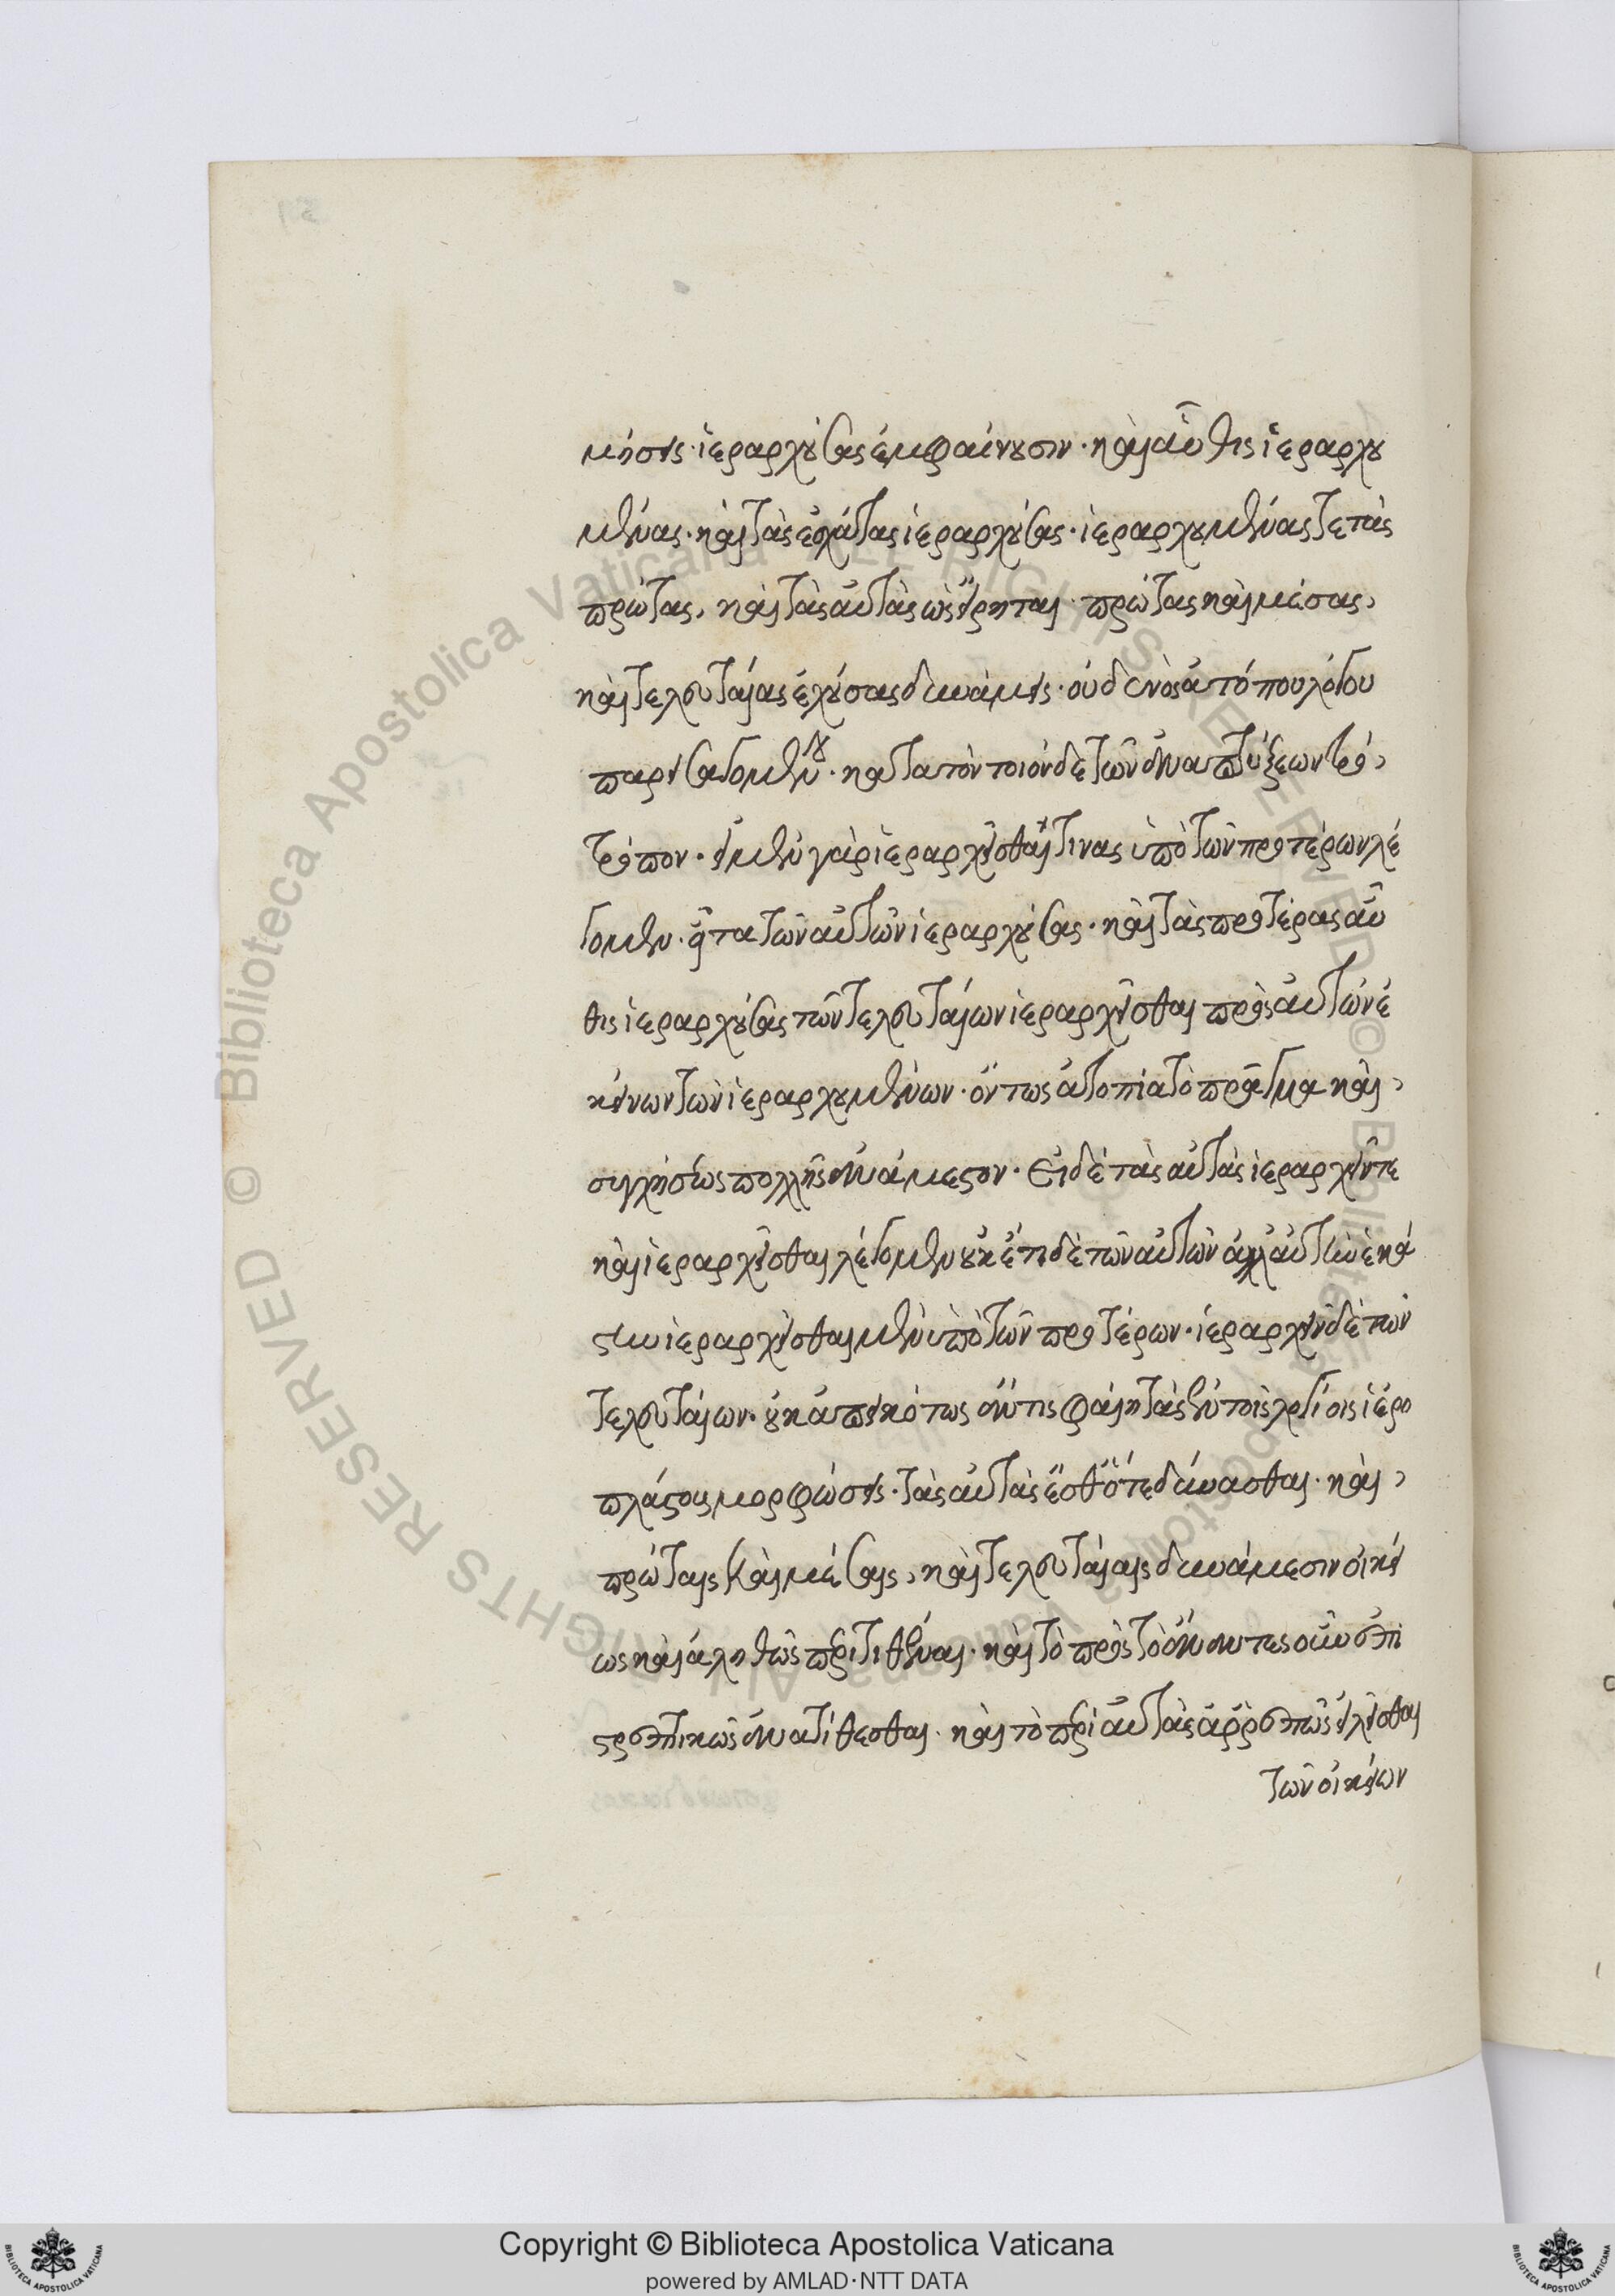 μήσεις· ἱεραρχούσας ἐμφαίνουσιν· καὶ αὖθις ἱεραρχου
μένας· καὶ τὰς ἐσχάτας ἱεραρχούσας· ἱεραρχουμένας τε τὰς
πρώτας, καὶ τὰς αὐτὰς ὡς εἴρηται· πρώτας καὶ μέσας,
καὶ τελευταίας ἐχούσας δυνάμεις· οὐδενὸς ἀτόπου λόγου
παρεισαγομένου· κατὰ τὸν τοιόνδε τῶν ἀναπτύξεων τρό,
τρόπον· εἰ μὲν γὰρ ἱεραρχεῖσθαί τινας ὑπὸ τῶν προτέρων λέ
γομεν· εἶτα τῶν αὐτῶν ἱεραρχούσας· καὶ τὰς προτέρας αὖ
θις ἱεραρχούσας τῶν τελευταίων ἱεραρχεῖσθαι πρὸς αὐτῶν ἐ
κείνων τῶν ἱεραρχουμένων· ὄντως ἀτοπία τὸ πρᾶγμα καὶ,
συγχήσεως πολλῆς ἀνάμεστον· Εἰ δὲ τὰς αὐτὰς ἱεραρχεῖν τε
καὶ ἱεραρχεῖσθαι λέγομεν οὐκ έτι δὲ τῶν αὐτῶν ἀλλ' αὐτὴν ἑκά
στην ἱεραρχεῖσθαι μὲν ὑπὸ τῶν προτέρων· ἱεραρχεῖν δὲ τῶν
τελευταίων· οὐκ ἀπεικότως ἄν τις φαίη τὰς ἐν τοῖς λογίοις ἱερο
πλάστους μορφώσεις· τὰς αὐτὰς ἔσθ' ὅτε δύνασθαι· καὶ,
πρώταις καὶ μέσαις, καὶ τελευταίαις δυνάμεσιν οἰκεί
ως καὶ ἀληθῶς περιτιθέναι· καὶ τὸ πρὸς τὸ ἄναντες οὖν ἐπι
στρεπτικῶς ἀνατίθεσθαι· καὶ τὸ περὶ αὐτὰς ἀρρεπῶς εἰλεῖσθαι
τῶν οἰκείων
Copyright © Biblioteca Apostolica Vaticana
powered by AMLAD·NTT DATA